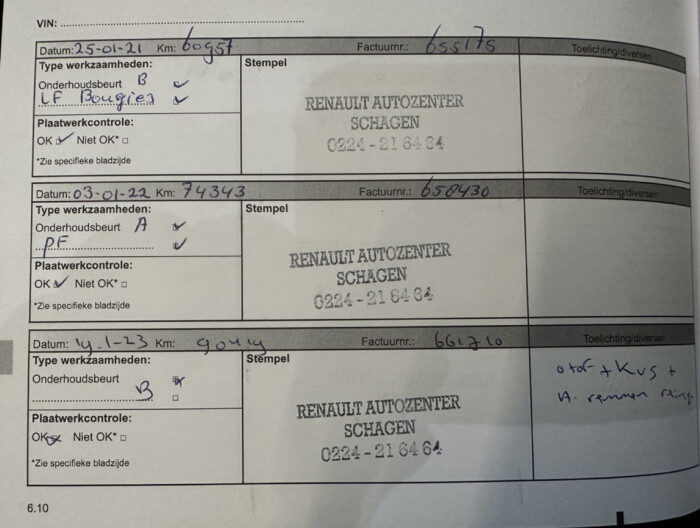 VIN:
Datum: 25-01-21 Km: 60957 Factuurnr.: 655175 Toelichting/diversen
Type werkzaamheden: Stempel
Onderhoudsbeurt B
LF Bougies
Plaatwerkcontrole:
OK Niet OK*
*Zie specifieke bladzijde
RENAULT AUTOZENTER
SCHAGEN
0224-21 64 64
Datum: 03-01-22 Km: 74343 Factuurnr.: 658430 Toelichting/diversen
Type werkzaamheden: Stempel
Onderhoudsbeurt A
PF
Plaatwerkcontrole:
OK Niet OK*
*Zie specifieke bladzijde
RENAULT AUTOZENTER
SCHAGEN
0224-21 64 64
Datum: 1-23 Km: Factuurnr.: 661710 Toelichting/diversen
Type werkzaamheden: Stempel
Onderhoudsbeurt
B
Plaatwerkcontrole:
OK Niet OK*
*Zie specifieke bladzijde
RENAULT AUTOZENTER
SCHAGEN
0224-21 64 64
+ KVS +
A. remmen
6.10